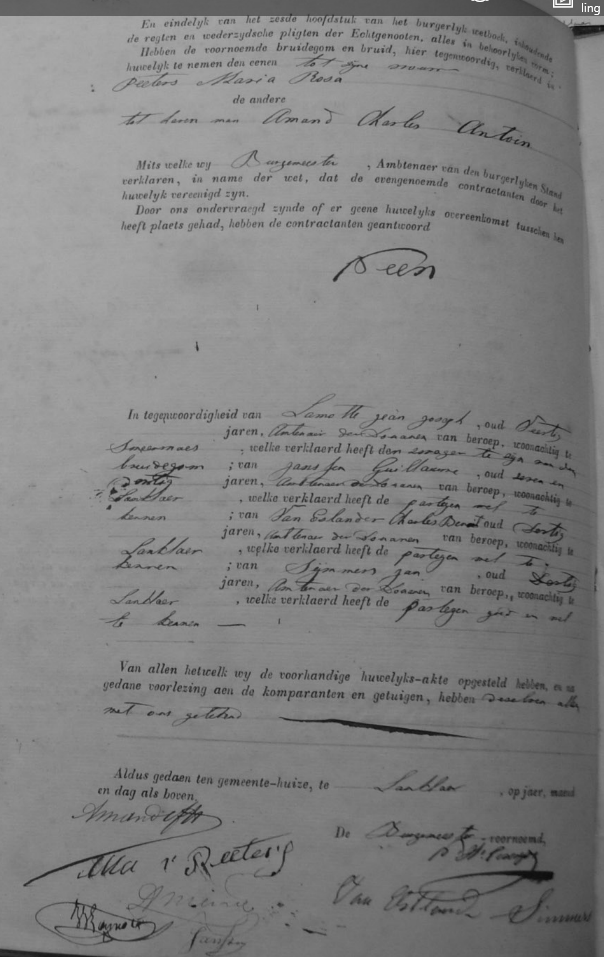 ling
En eindelyk van het zesde hoofdstuk van het burgerlyk wetboek, inhoudende
de regten en wederzydsche pligten der Echtgenooten, alles in behoorlyken vorm;
Hebben de voornoemde bruidegom en bruid, hier tegenwoordig, verklaerd in
huwelyk te nemen den eenen tot zyne vrouw
Peeters Maria Rosa
de andere
tot haren man Amand Charles Antoin
Mits welke wy Burgemeester, Ambtenaer van den burgerlyken Stand
verklaren, in name der wet, dat de evengenoemde contractanten door het
huwelyk vereenigd zyn.
Door ons ondervraegd zynde of er geene huwelyks overeenkomst tusschen hen
heeft plaets gehad, hebben de contractanten geantwoord
Neen
In tegenwoordigheid van Lamotte jean joseph, oud
jaren, Ambtenaer der Douanen van beroep, woonachtig te
, welke verklaerd heeft den te zyn van den
bruidegom ; van Janssen Guillaume, oud seven en
jaren, Ambtenaer der Douanen van beroep, woonachtig te
Lanklaer, welke verklaerd heeft de partyen wel te
kennen ; van Van Charles oud
jaren, Ambtenaer der Douanen van beroep, woonachtig te
Lanklaer, welke verklaerd heeft de partyen wel te
kennen ; van Symmers jan, oud
jaren, Ambtenaer der Douanen van beroep, woonachtig te
Lanklaer, welke verklaerd heeft de partyen goed en wel
te kennen
Van allen hetwelk wy de voorhandige huwelyks-akte opgesteld hebben, en na
gedane voorlezing aen de komparanten en getuigen, hebben deselven allen
met ons getekend
Aldus gedaen ten gemeente-huize, te Lanklaer, op jaer, maend
en dag als boven.
De Burgemeester voornoemd,
Peeters
Van
Simmers
Janssen